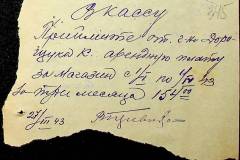 В кассу
Примите от г-на Доро-
щука К. арендную плату
за магазин с 1/V по 1/VIII 43
за три месяца 154
27/VII 43